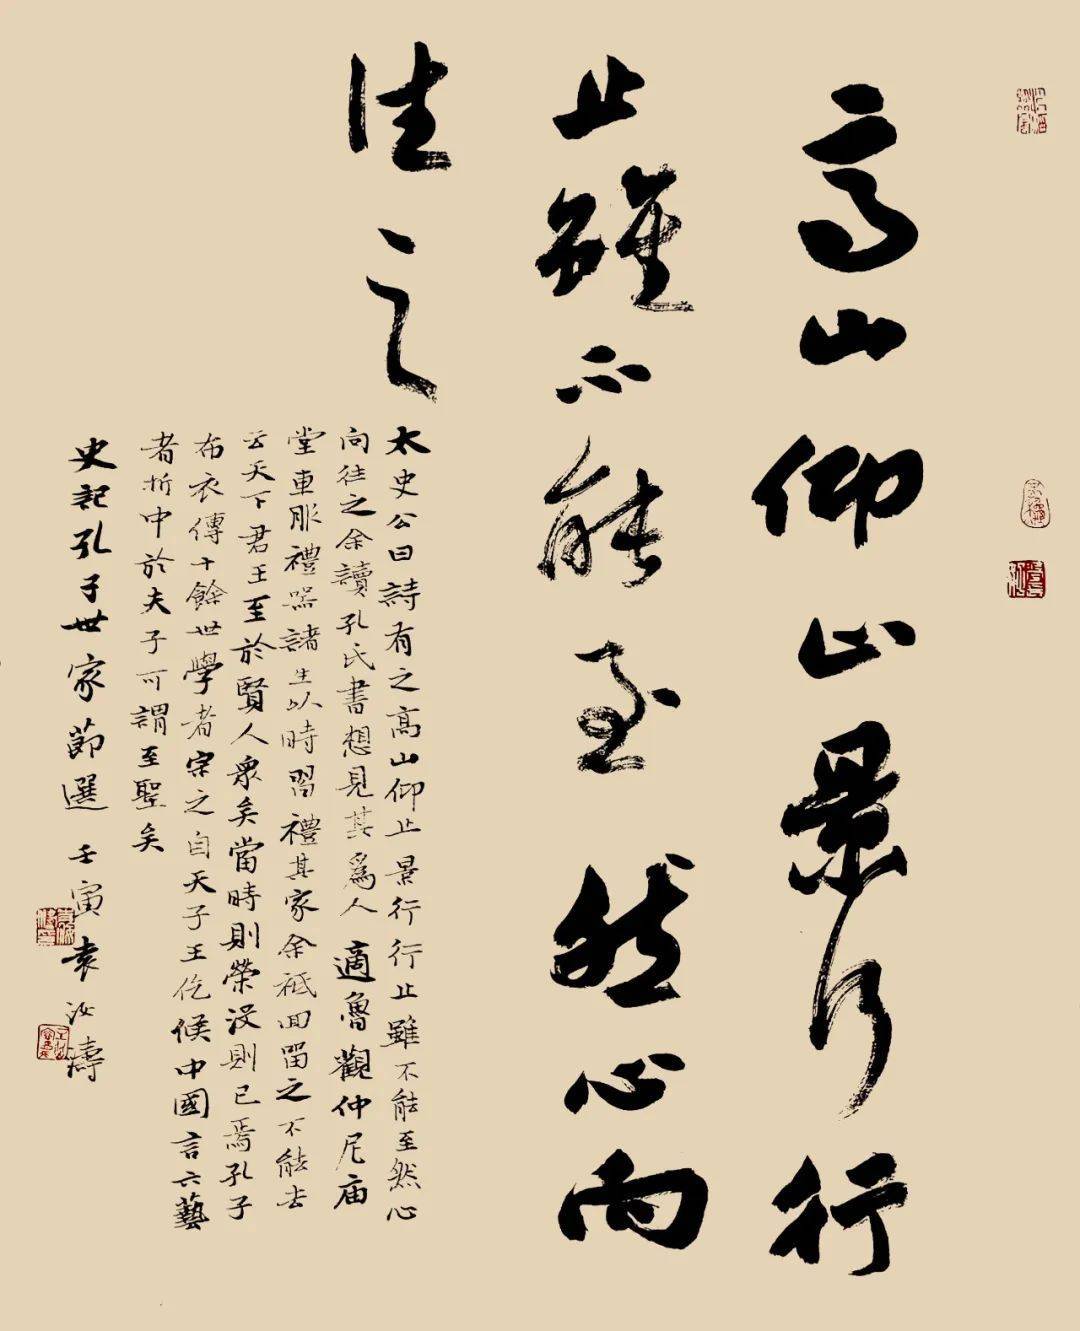 高山仰止景行行
止雖不能至然心向
往之
太史公曰詩有之高山仰止景行行止雖不能至然心
向往之余讀孔氏書想見其爲人適魯觀仲尼庙
堂車服禮器諸生以時習禮其家余祗回留之不能去
云天下君王至於賢人衆矣當時則榮没則已焉孔子
布衣傳十餘世學者宗之自天子王候中國言六藝
者折中於夫子可謂至聖矣
史記孔子世家節選 壬寅袁汝濤